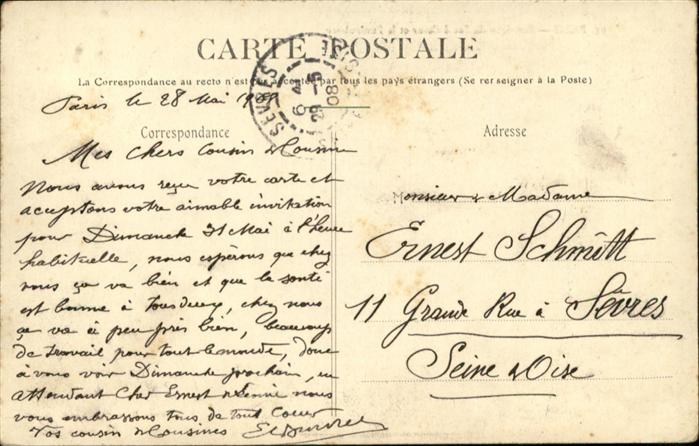 CARTE POSTALE
La Correspondance au recto n'est pas acceptée par tous les pays étrangers (Se renseigner à la Poste)
Paris le 28 Mai 1908
SÈVRES
08
Correspondance
Mes chers Cousin & Cousine
Nous avons reçu votre carte et
acceptons votre aimable invitation
pour Dimanche 31 Mai à l'heure
habituelle, nous espérons que chez
vous ça va bien et que la santé
est bonne à tous deux, chez nous
ça va à peu près bien, beaucoup
de travail pour tout le monde, donc
à vous voir Dimanche prochain, en
attendant Cher Ernest &
nous
vous embrassons tous de tout Coeur
Vos cousin & Cousines
Adresse
Monsieur & Madame
Ernest Schmitt
11 Grande Rue à Sèvres
Seine & Oise